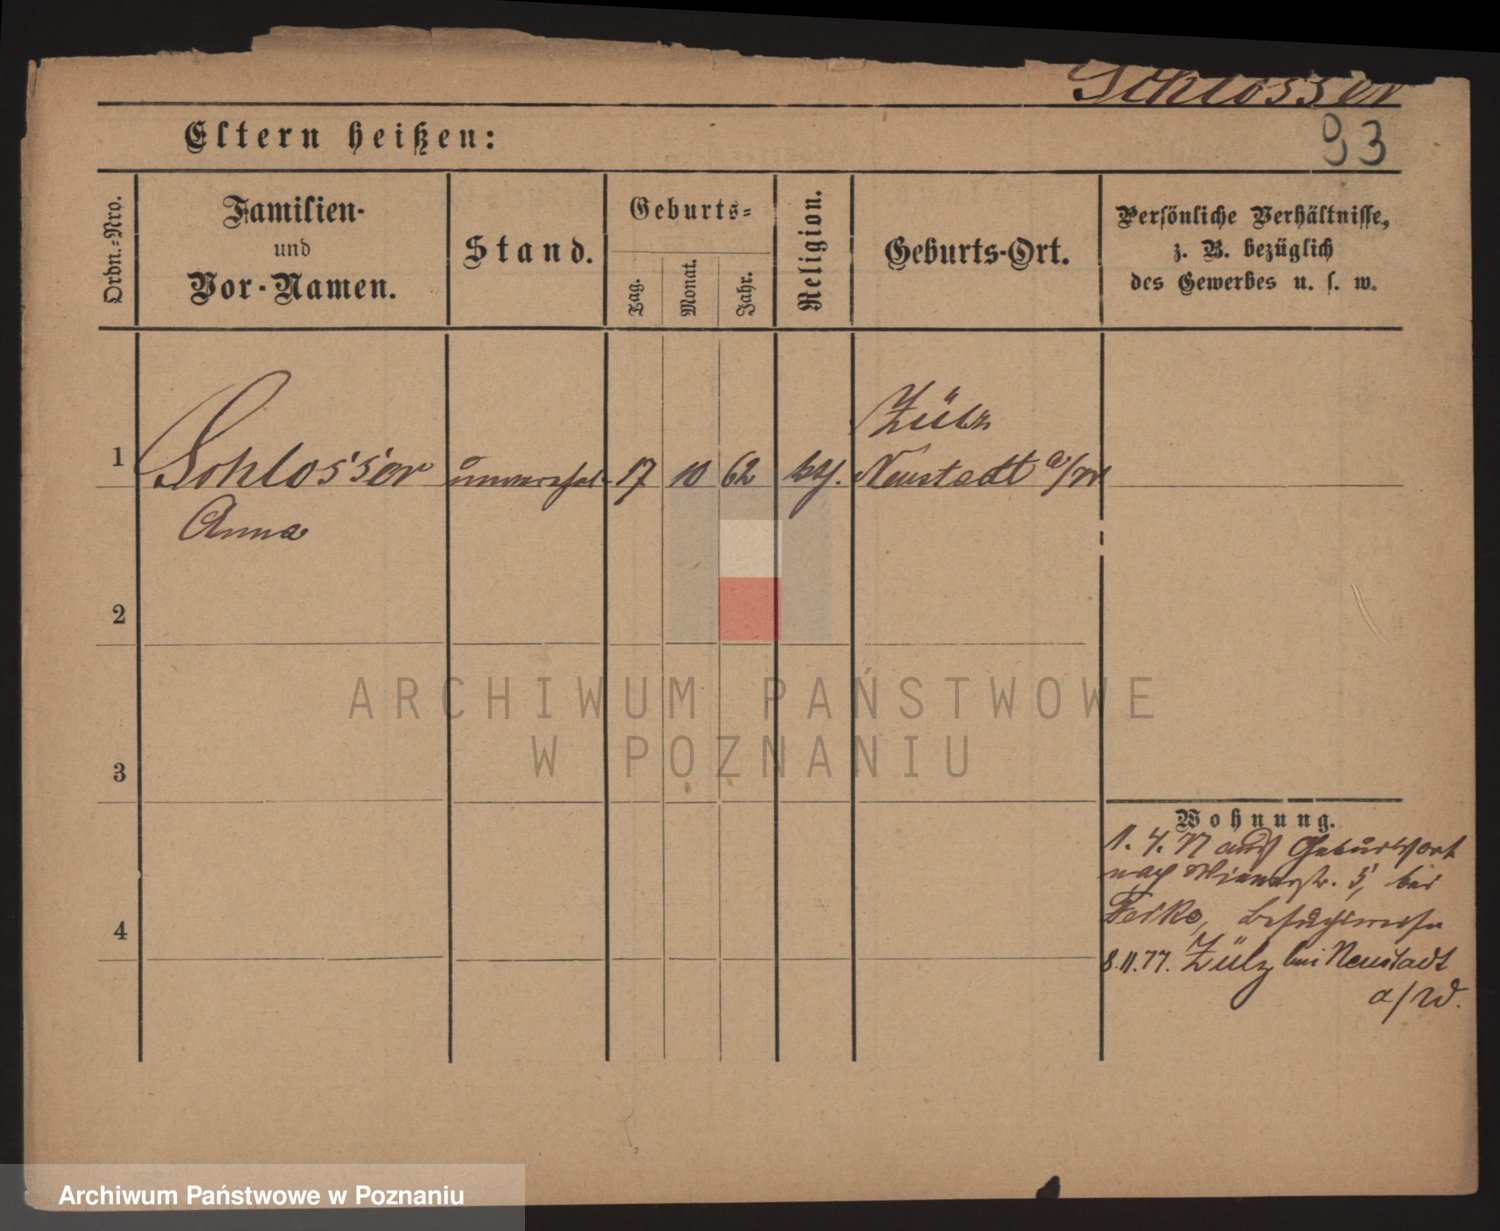 Schlosser
93
Eltern heißen:
Ordn.-Nro.
Familien-
und
Vor-Namen.
Stand.
Geburts-
Tag.
Monat.
Jahr.
Religion.
Geburts-Ort.
Persönliche Verhältnisse,
z. B. bezüglich
des Gewerbes u. s. w.
Zülz
1 Schlosser unverehel. 17 10 62 kth. Neustadt
Anna
2
3
4
Wohnung.
1. 4. 77 aus Geburtsort
nach 5, bei
besuchsweise
8.11.77. Zülz bei Neustadt
ARCHIWUM PAŃSTWOWE
W POZNANIU
Archiwum Państwowe w Poznaniu